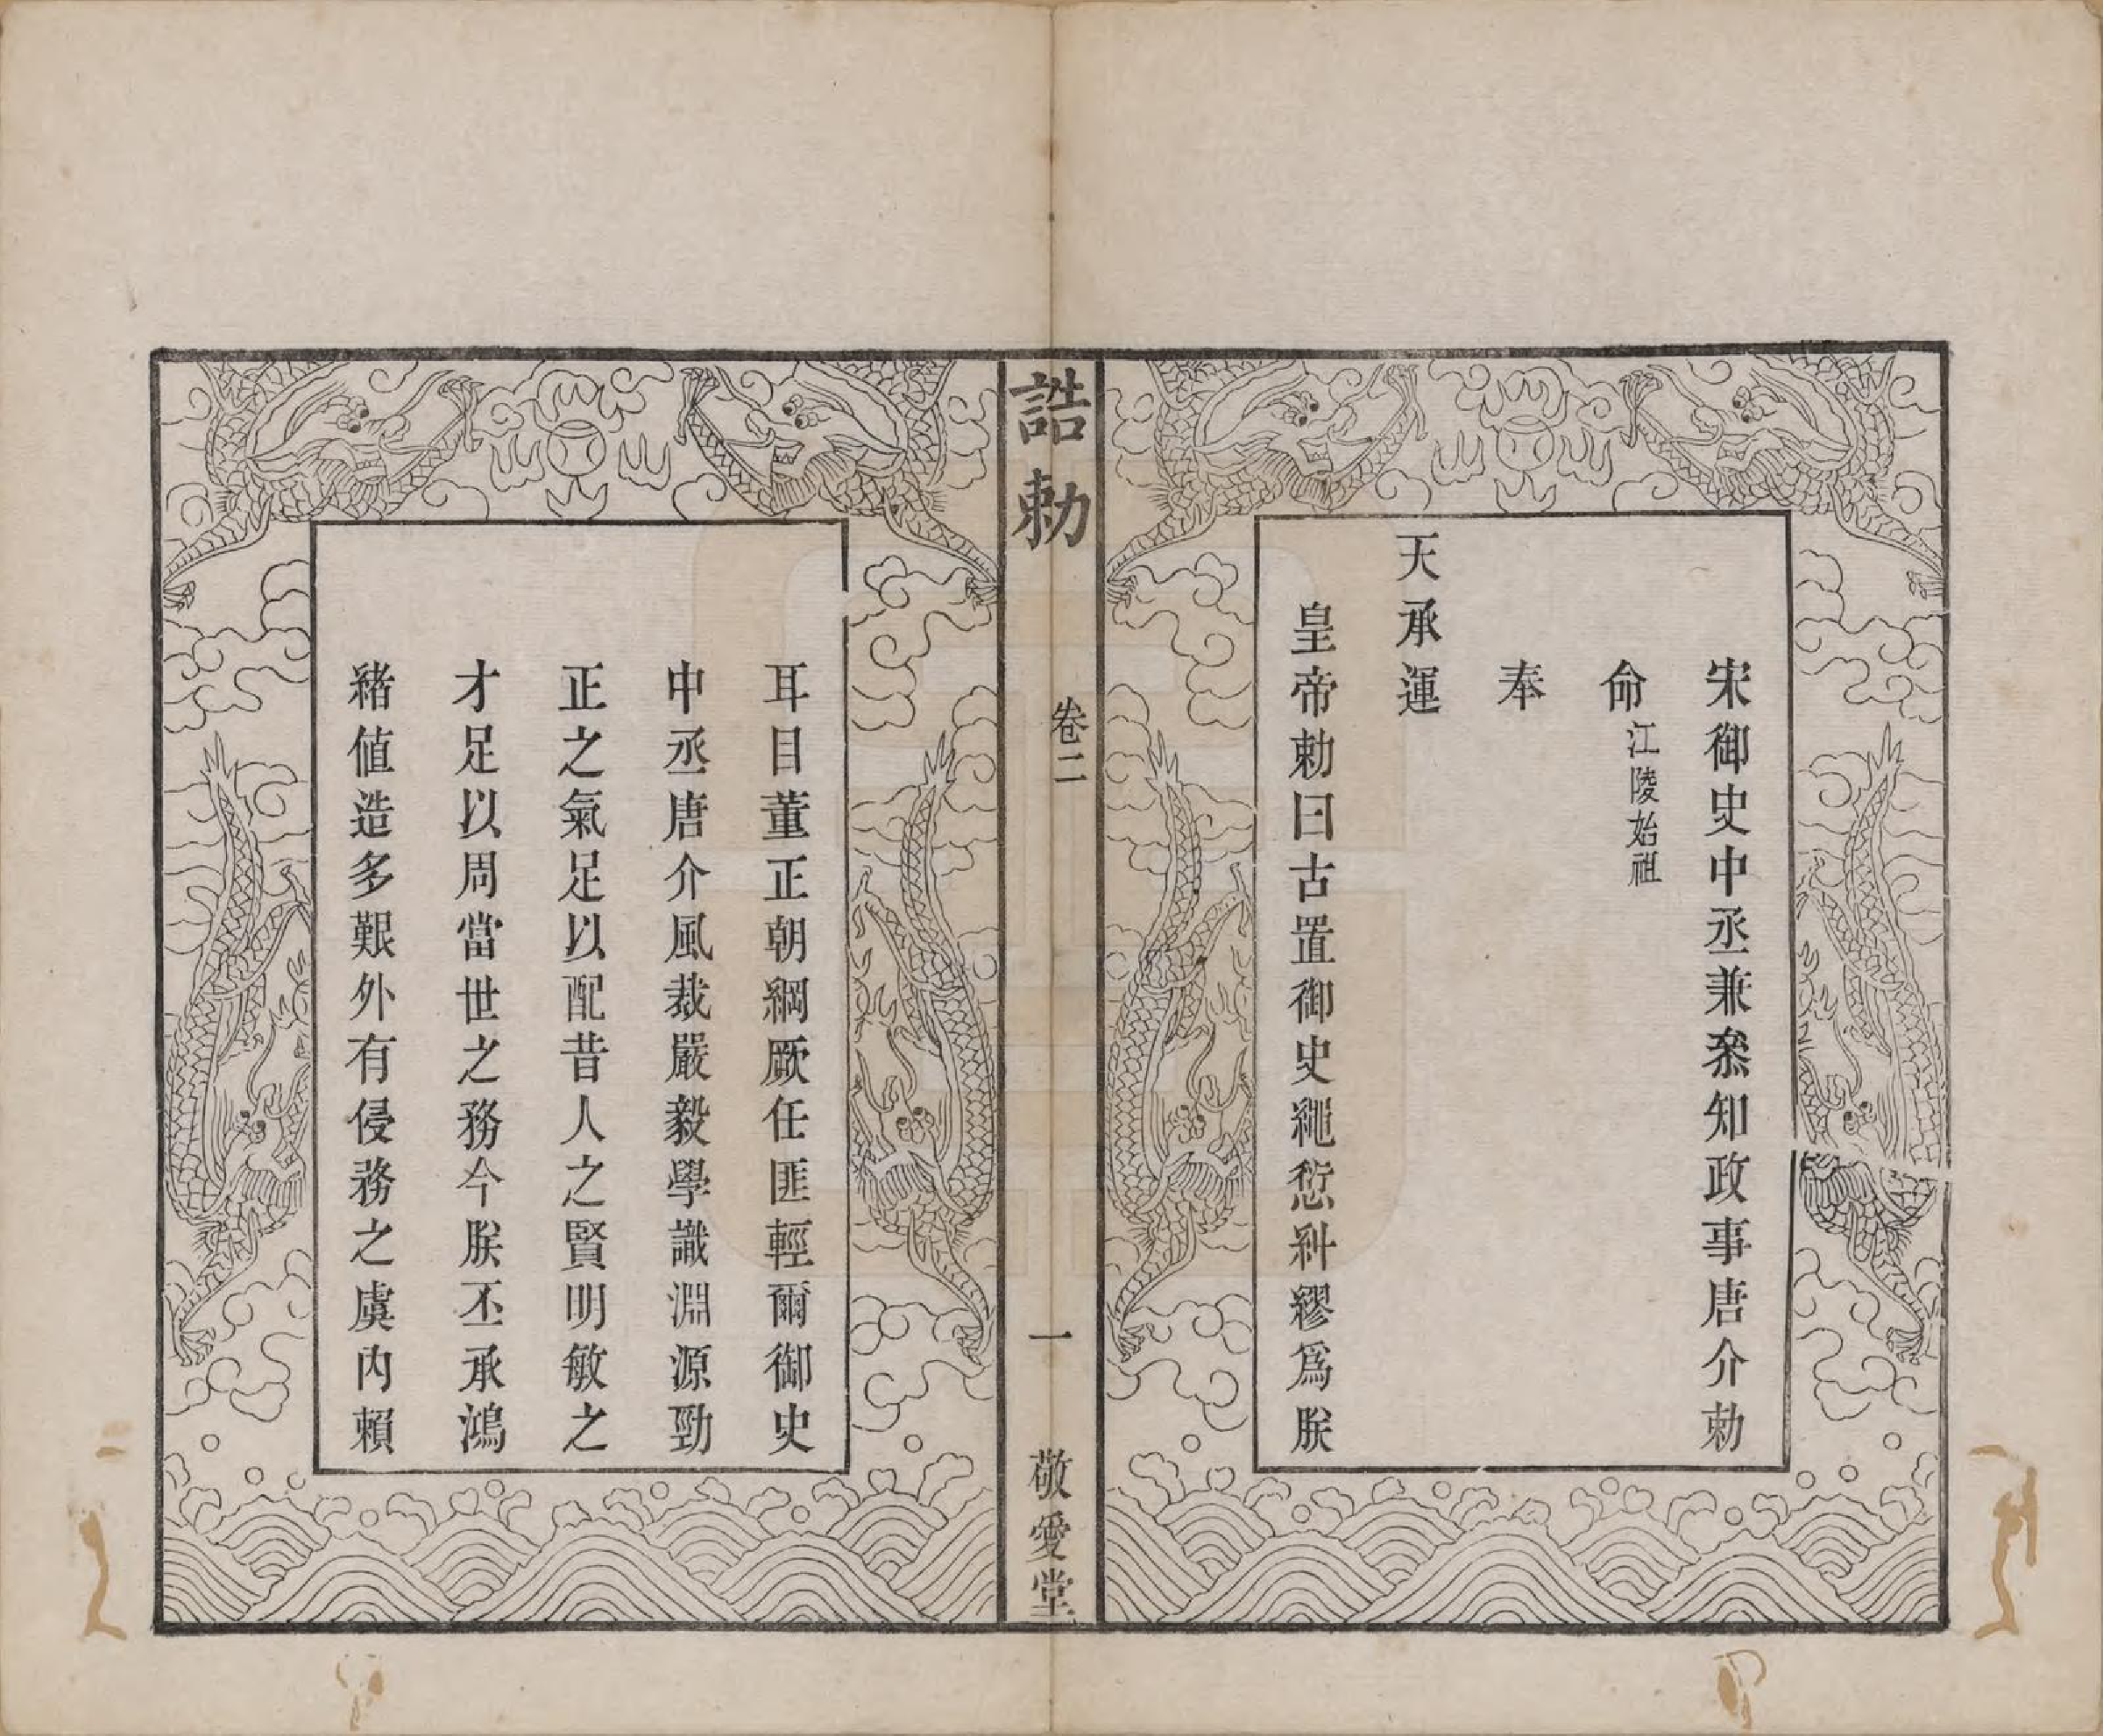 宋御史中丞兼叅知政事唐介勅
命江陵始祖
奉
天承運
皇帝勅曰古置御史繩愆糾繆爲朕
誥勅
卷二
一
敬愛堂
耳目董正朝綱厥任匪輕爾御史
中丞唐介風裁嚴毅學識淵源勁
正之氣足以配昔人之賢明敏之
才足以周當世之務今朕丕承鴻
緒値造多艱外有侵務之虞內賴